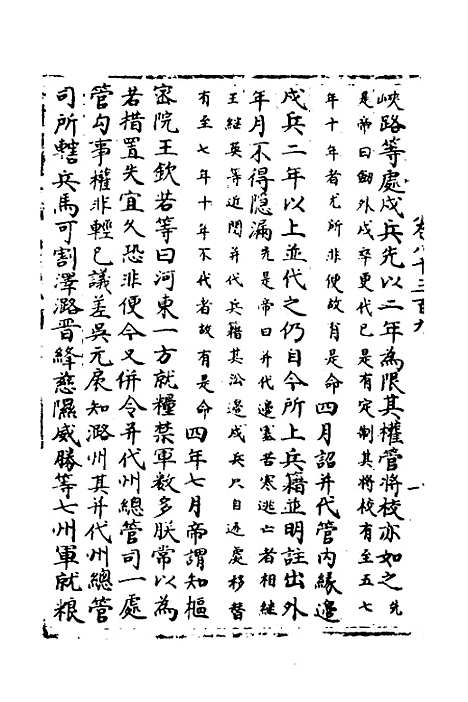 峽路等處戍兵先以二年為限其權管將校亦如之先
是帝曰劒外戍卒更代已是有定制其將校有至五七
年十年者尤所非便故有是命四月詔并代管內緣邊
戍兵二年以上並代之仍自今所上兵籍並明註出外
年月不得隱漏先是帝曰并代邉塞苦寒逃亡者相継
王継英等近閱并代兵籍其㳂邉戍兵只自近處移替
有至七年十年不代者故有是命四年七月帝謂知樞
宻院王欽若等曰河東一方就糧禁軍数多朕常以為
若措置失宜久恐非便今又併令并代州總管司一處
管勾事權非輕已議差吳元扆知潞州其并代州總管
司所轄兵馬可割澤潞晋絳慈隰威勝等七州軍就粮